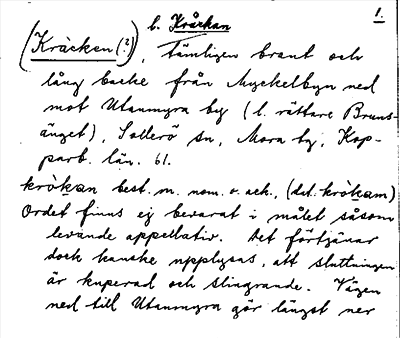 1.
l. Kråckan
(Kräcken (?)), tämligen brant och
lång backe från Myckelbyn ned
mot Utanmyra by (l. rättare Bruns-
änget), Sollerö sn, Mora tg, Kop-
parb. län. 61.
krókan best. m. nom. o. ack., (dat. krókam)
Ordet finns ej bevarat i målet såsom
levande appellativ. Det förtjänar
dock kanske upplysas, att sluttningen
är kuperad och slingrande. Vägen
ned till Utanmyra går längst ner